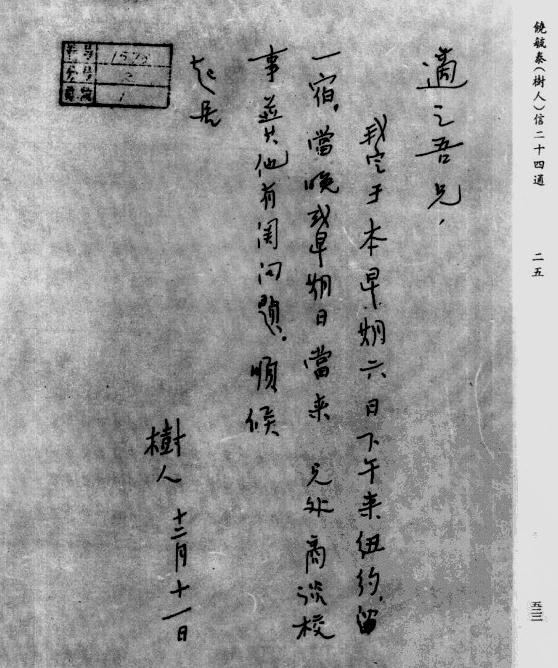 饒毓泰(樹人)信二十四通
二五
五三三
適之吾兄,
我定于本星期六日下午來紐約,留
一宿,當晚或星期日當来 兄处商談校
事並其他有関问題。順候
起居
樹人 十二月十一日
1578
2
1